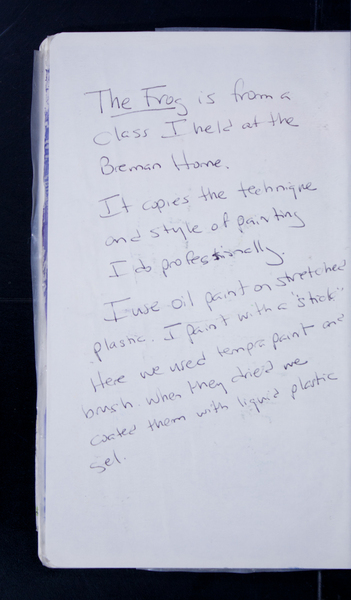 The Frog is from a
class I held at the
Breman Home.
It copies the technique
and style of painting
I do professionally.
I use oil paint on stretched
plastic. I paint with a "stick"
Here we used tempra paint and
brush. When they dried we
coated them with liquid plastic
gel.